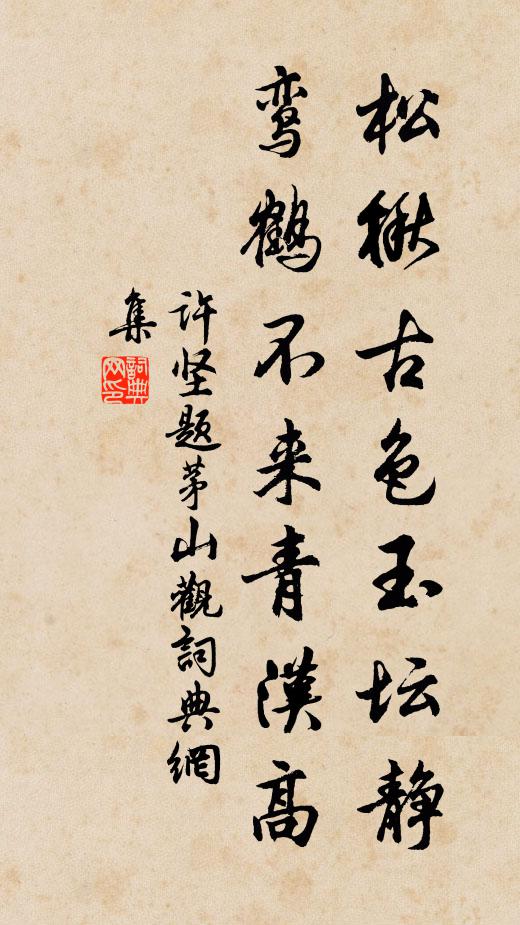 松楸古色玉坛静
鸾鹤不来青漢高
许坚题茅山觀詞典網
集
詞典
网印